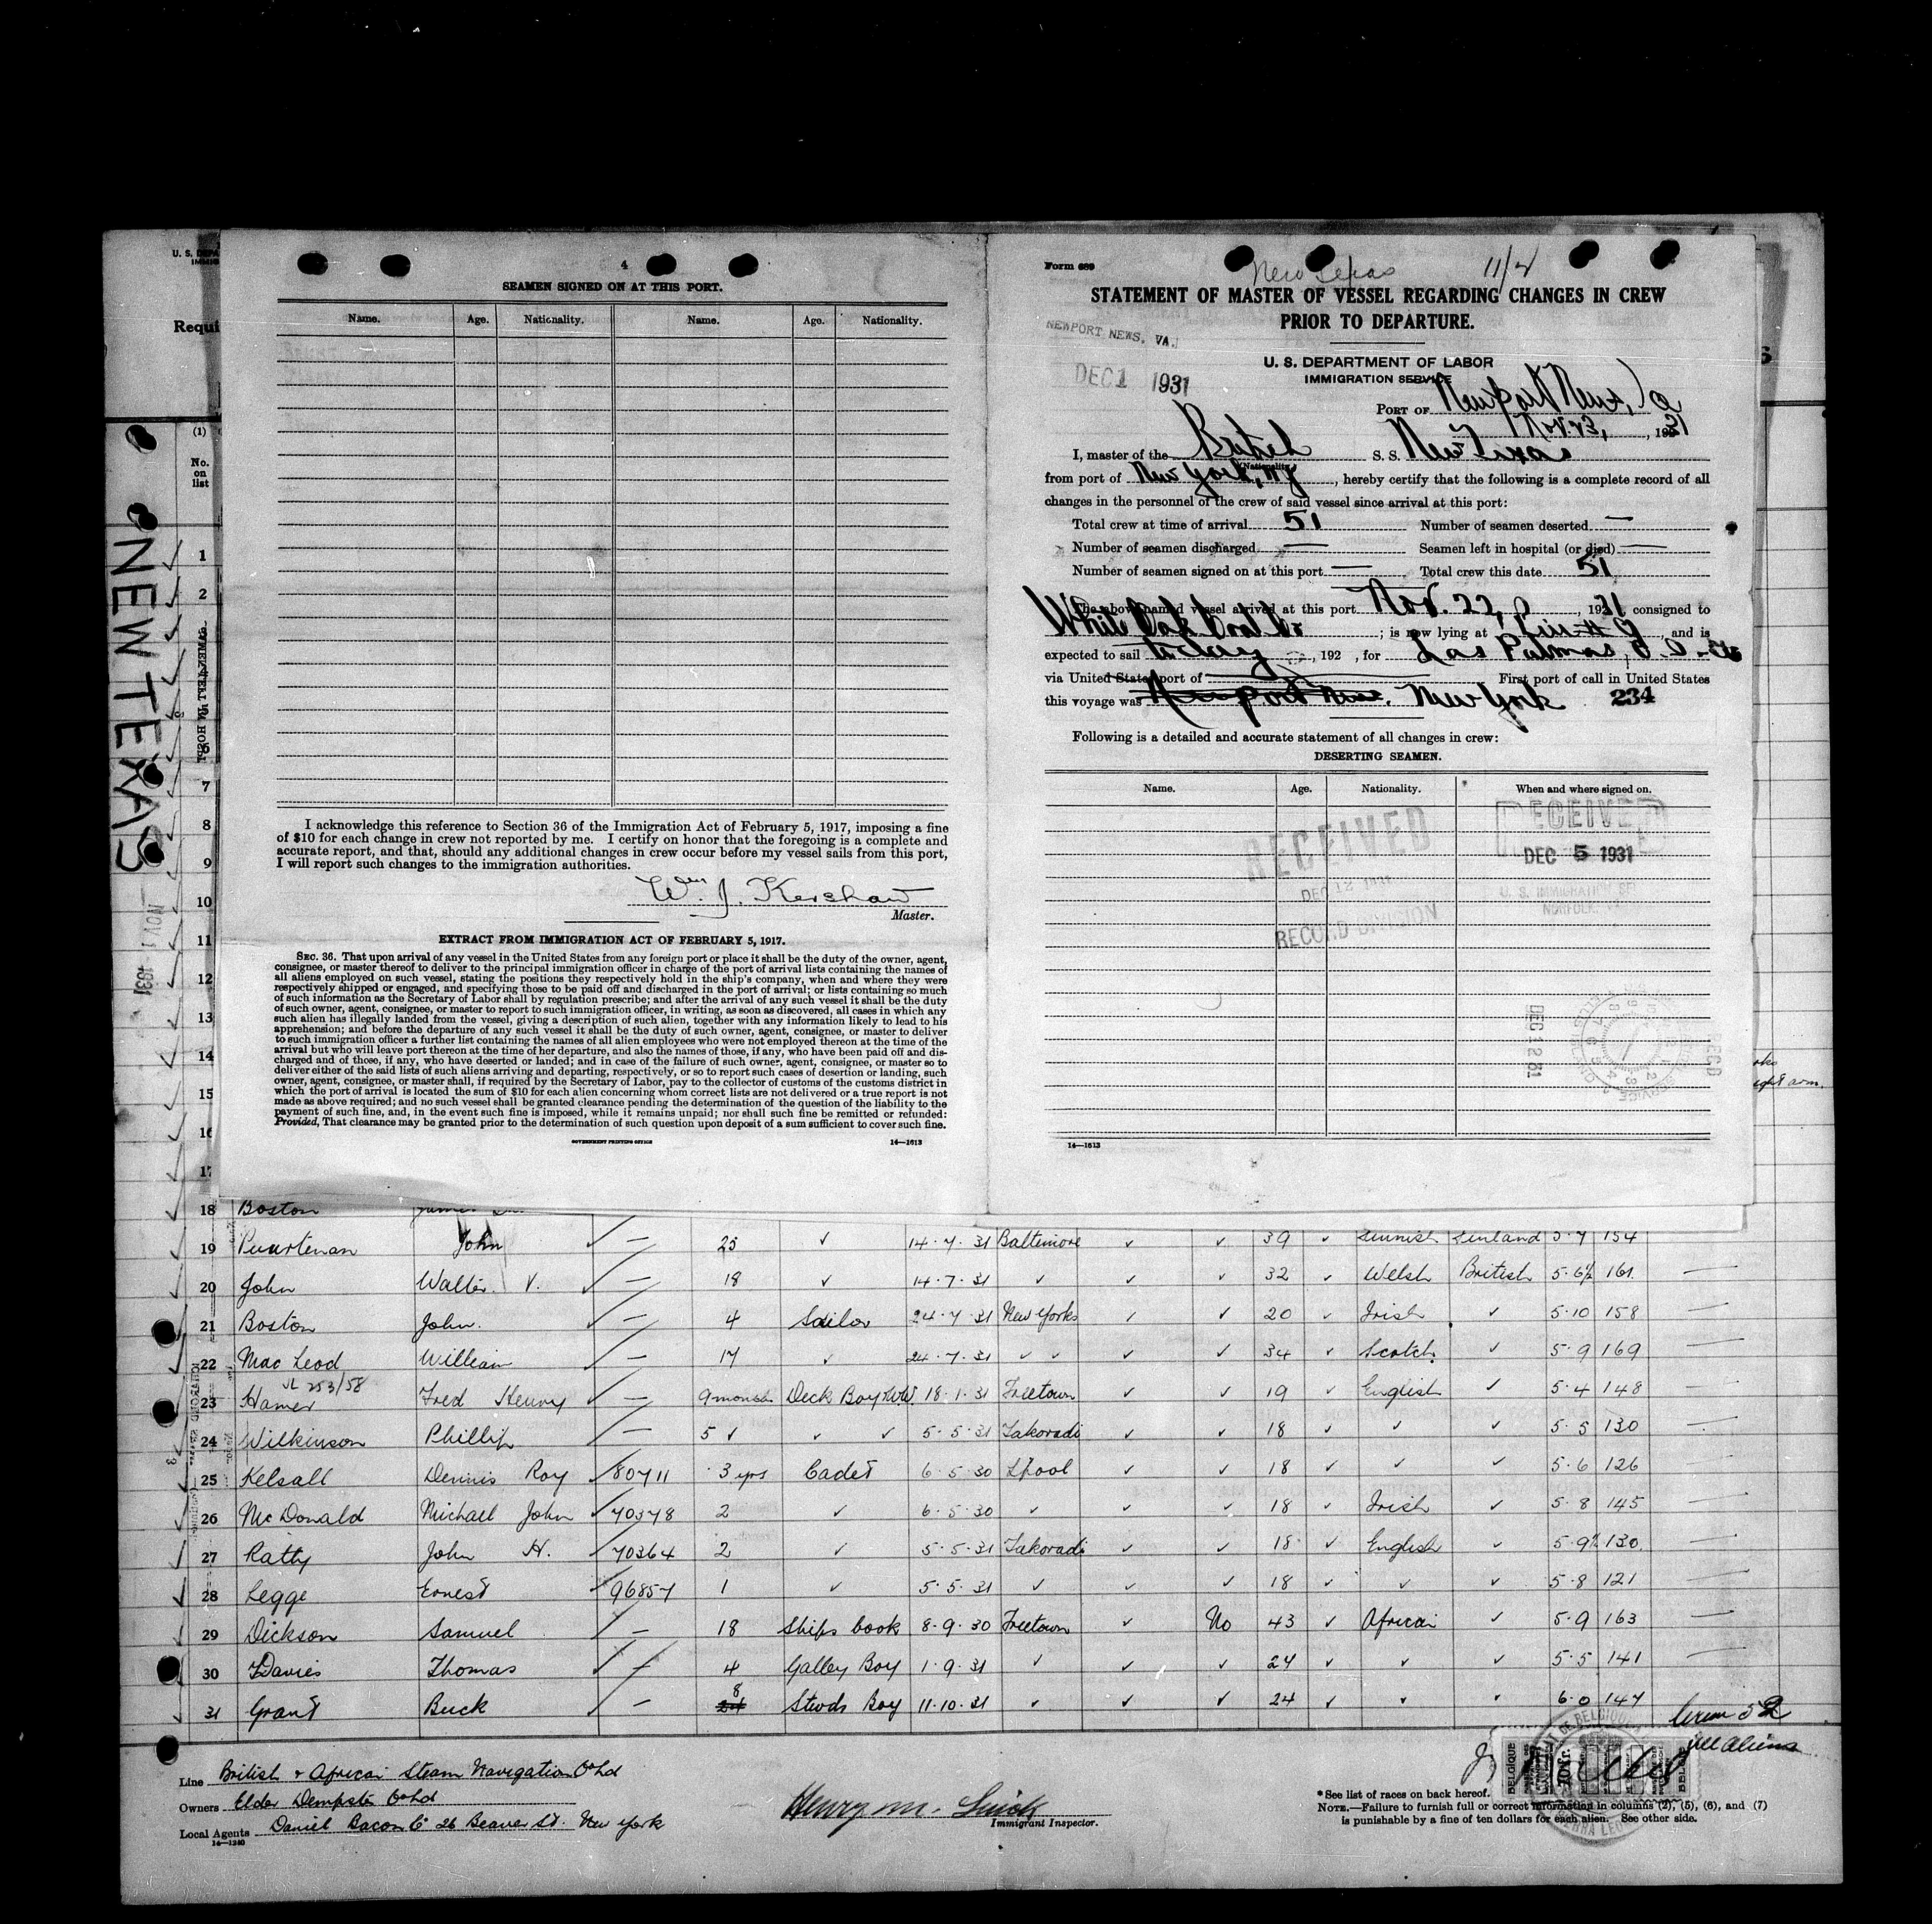 U. S. DEPA
IMMIG
Requi
(1)
No.
on
list
NEW TEXAS
NOV 1 1931
4
SEAMEN SIGNED ON AT THIS PORT.
Name. Age. Nationality. Name. Age. Nationality.
I acknowledge this reference to Section 36 of the Immigration Act of February 5, 1917, imposing a fine
of $10 for each change in crew not reported by me. I certify on honor that the foregoing is a complete and
accurate report, and that, should any additional changes in crew occur before my vessel sails from this port,
I will report such changes to the immigration authorities.
Wm J. Kershaw
Master.
EXTRACT FROM IMMIGRATION ACT OF FEBRUARY 5, 1917.
SEC. 36. That upon arrival of any vessel in the United States from any foreign port or place it shall be the duty of the owner, agent,
consignee, or master thereof to deliver to the principal immigration officer in charge of the port of arrival lists containing the names of
all aliens employed on such vessel, stating the positions they respectively hold in the ship's company, when and where they were
respectively shipped or engaged, and specifying those to be paid off and discharged in the port of arrival; or lists containing so much
of such information as the Secretary of Labor shall by regulation prescribe; and after the arrival of any such vessel it shall be the duty
of such owner, agent, consignee, or master to report to such immigration officer, in writing, as soon as discovered, all cases in which any
such alien has illegally landed from the vessel, giving a description of such alien, together with any information likely to lead to his
apprehension; and before the departure of any such vessel it shall be the duty of such owner, agent, consignee, or master to deliver
to such immigration officer a further list containing the names of all alien employees who were not employed thereon at the time of the
arrival but who will leave port thereon at the time of her departure, and also the names of those, if any, who have been paid off and dis-
charged and of those, if any, who have deserted or landed; and in case of the failure of such owner, agent, consignee, or master so to
deliver either of the said lists of such aliens arriving and departing, respectively, or so to report such cases of desertion or landing, such
owner, agent, consignee, or master shall, if required by the Secretary of Labor, pay to the collector of customs of the customs district in
which the port of arrival is located the sum of $10 for each alien concerning whom correct lists are not delivered or a true report is not
made as above required; and no such vessel shall be granted clearance pending the determination of the question of the liability to the
payment of such fine, and, in the event such fine is imposed, while it remains unpaid; nor shall such fine be remitted or refunded:
Provided, That clearance may be granted prior to the determination of such question upon deposit of a sum sufficient to cover such fine.
GOVERNMENT PRINTING OFFICE 14—1613
Form 689
New Texas 11/4
STATEMENT OF MASTER OF VESSEL REGARDING CHANGES IN CREW
PRIOR TO DEPARTURE.
NEWPORT NEWS, VA.
DEC 1 1931
U. S. DEPARTMENT OF LABOR
IMMIGRATION SERVICE
PORT OF Newport News, Va
Nov. 23, 1931
I, master of the British S. S. New Texas
(Nationality)
from port of New York, NY, hereby certify that the following is a complete record of all
changes in the personnel of the crew of said vessel since arrival at this port:
Total crew at time of arrival 51 Number of seamen deserted —
Number of seamen discharged — Seamen left in hospital (or died) —
Number of seamen signed on at this port — Total crew this date 51
The above named vessel arrived at this port Nov. 22, 1931 consigned to
White Oak Coal Co ; is now lying at Pier # 9 , and is
expected to sail today , 192 , for Las Palmas,
via United States port of First port of call in United States
this voyage was Newport News. New York 234
Following is a detailed and accurate statement of all changes in crew:
DESERTING SEAMEN.
Name. Age. Nationality. When and where signed on.
RECEIVED
DEC 12 1931
RECORD DIVISION
RECEIVED
DEC 5 1931
U. S. IMMIGRATION SER
NORFOLK, VA
DEC 12 31
14—1613
1
2
7
8
9
10
11
12
13
14
15
16
17
18 Boston James
19 Puurtenan John ✓ — 25 ✓ 14.7.31 Baltimore ✓ ✓ 39 ✓ Finnish Finland 5.7 154
20 John Walter V. ✓ — 18 ✓ 14.7.31 ✓ ✓ ✓ 32 ✓ Welsh British 5.6½ 161 —
21 Boston John. ✓ — 4 Sailor 24.7.31 New York ✓ ✓ 20 ✓ Irish ✓ 5.10 158 —
22 Mac Leod William ✓ — 17 ✓ 24.7.31 ✓ ✓ ✓ ✓ 34 ✓ Scotch ✓ 5.9 169 —
253/58
23 Hamer Fred Henry ✓ — 9 months Deck Boy 18.1.31 Freetown ✓ ✓ 19 ✓ English ✓ 5.4 148 —
24 Wilkinson Phillip — 5 ✓ ✓ ✓ 5.5.31 Takoradi ✓ ✓ 18 ✓ ✓ ✓ 5.5 130
25 Kelsall Dennis Roy ✓ 80711 3 yrs Cadet 6.5.30 Lpool ✓ ✓ 18 ✓ ✓ ✓ 5.6 126 —
26 McDonald Michael John ✓ 70378 2 ✓ 6.5.30 ✓ ✓ ✓ 18 ✓ Irish ✓ 5.8 145 —
27 Rathy John H. ✓ 70364 2 ✓ 5.5.31 Takoradi ✓ ✓ 18 ✓ English ✓ 5.9½ 130 —
28 Legge Ernest ✓ 96857 1 ✓ 5.5.31 ✓ ✓ ✓ 18 ✓ ✓ ✓ 5.8 121 —
29 Dickson Samuel — 18 Ships Cook 8.9.30 Freetown ✓ No 43 ✓ African ✓ 5.9 163 —
30 Davies Thomas ✓ — 4 Galley Boy 1.9.31 ✓ ✓ ✓ 24 ✓ ✓ ✓ 5.5 141 —
31 Grant Buck — 8 Stwds Boy 11.10.31 ✓ ✓ ✓ 24 ✓ ✓ ✓ 6.0 147
Crew 52
all aliens
Line British & African Steam Navigation Co Ltd
Owners Elder Dempster Co Ltd
Local Agents Daniel Bacon Co 26 Beaver St. New York
14—1240
Henry M.
Immigrant Inspector.
BELGIQUE 10 Fr. BELGIE
*See list of races on back hereof.
NOTE.—Failure to furnish full or correct information in columns (2), (5), (6), and (7)
is punishable by a fine of ten dollars for each alien. See other side.